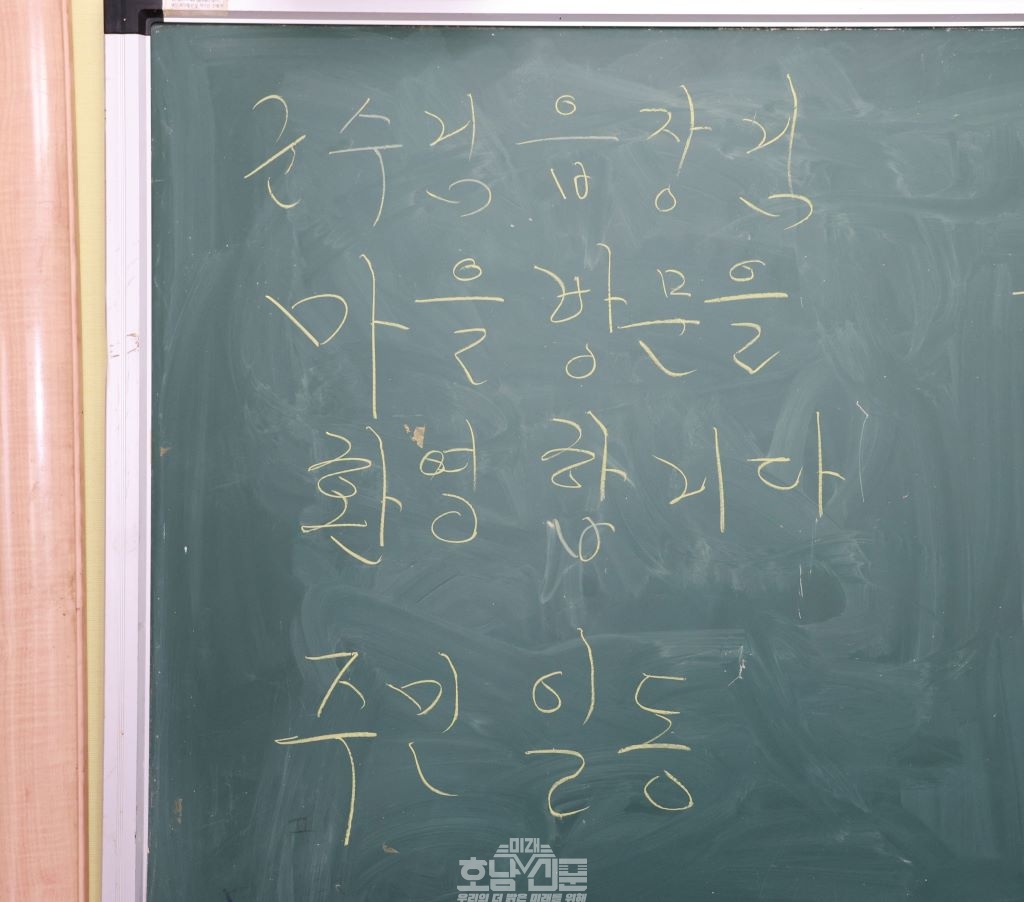 군수님 읍장님
마을 방문을
환영 합니다
주민 일동
미래
호남신문
우리의 더 밝은 미래를 위해